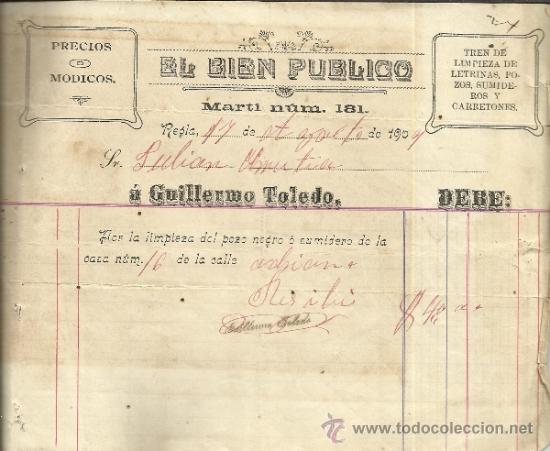 PRECIOS
MODICOS.
EL BIEN PUBLICO
Martí núm. 181.
TREN DE
LIMPIEZA DE
LETRINAS, PO-
ZOS, SUMIDE-
ROS Y
CARRETONES.
Regla, 17 de Agosto de 190
Sr. Julian
á Guillermo Toledo, DEBE:
Por la limpieza del pozo negro ó sumidero de la
casa núm. 16 de la calle
Recibí
$ 42
Guillermo Toledo
www.todocoleccion.net